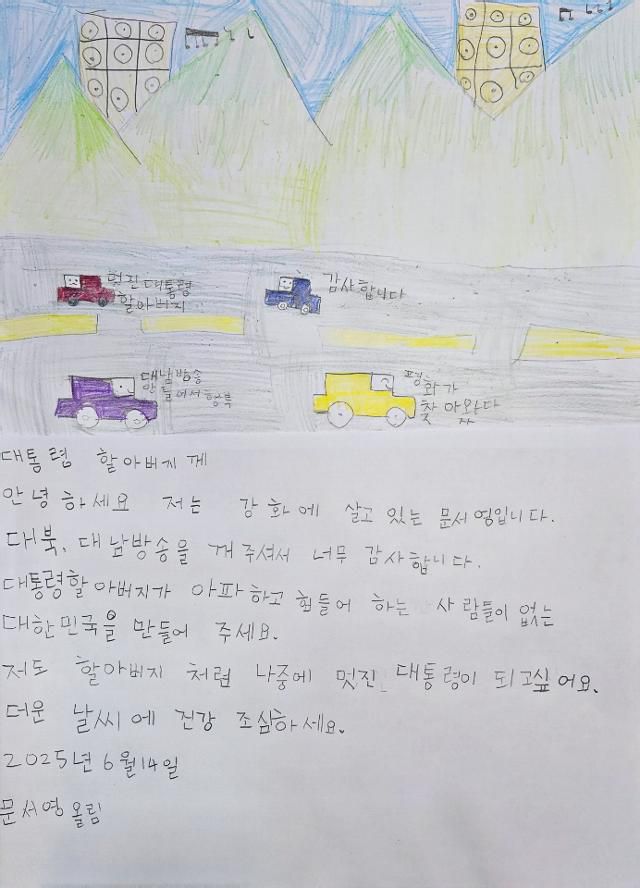 멋진대통령
할아버지
감사합니다
대남방송
안들어서 행복
평
화가
찾아왔다
대통령 할아버지께
안녕하세요 저는 강화에 살고 있는 문서영입니다.
대북, 대남방송을 꺼주셔서 너무 감사합니다.
대통령할아버지가 아파하고 힘들어 하는 사람들이 없는
대한민국을 만들어 주세요.
저도 할아버지 처럼 나중에 멋진 대통령이 되고싶어요.
더운 날씨에 건강 조심하세요.
2025년 6월 14일
문서영 올림